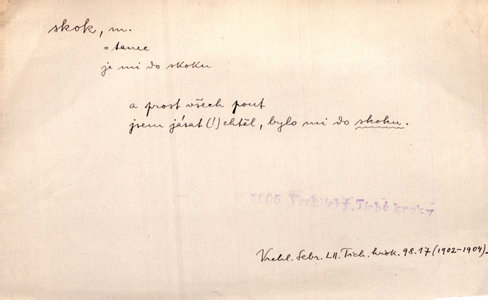 skok, m.
= tanec
je mi do skoku
a prost všech pout
jsem jásat (!) chtěl, bylo mi do skoku.
Vrchlický, Tiché kroky
Vrchl. Sebr. LII. Tich. krok. 98.17 (1902-1904)